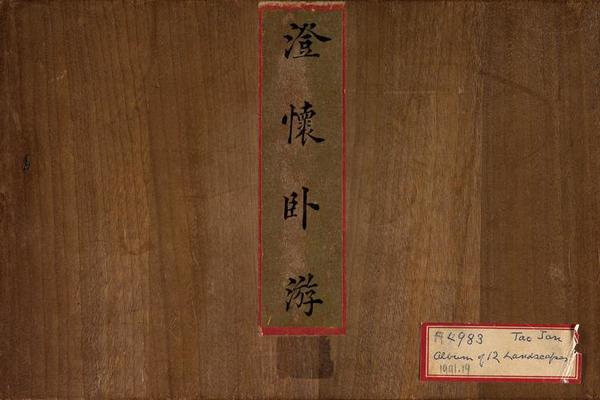 澄懷卧游
A4983 Tao Jan
Album of 12 Landscapes
1991.19